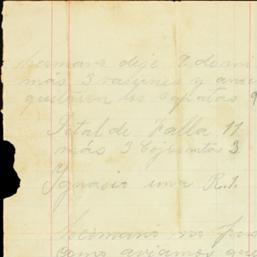 hermano dije 9 de mi
más 3 rasiones y
quitaron los sapatos 9
Total de Falla 11
más 3 Cojuntos 3
Ygnacio una R. 1.
hermano no
como aviamos que